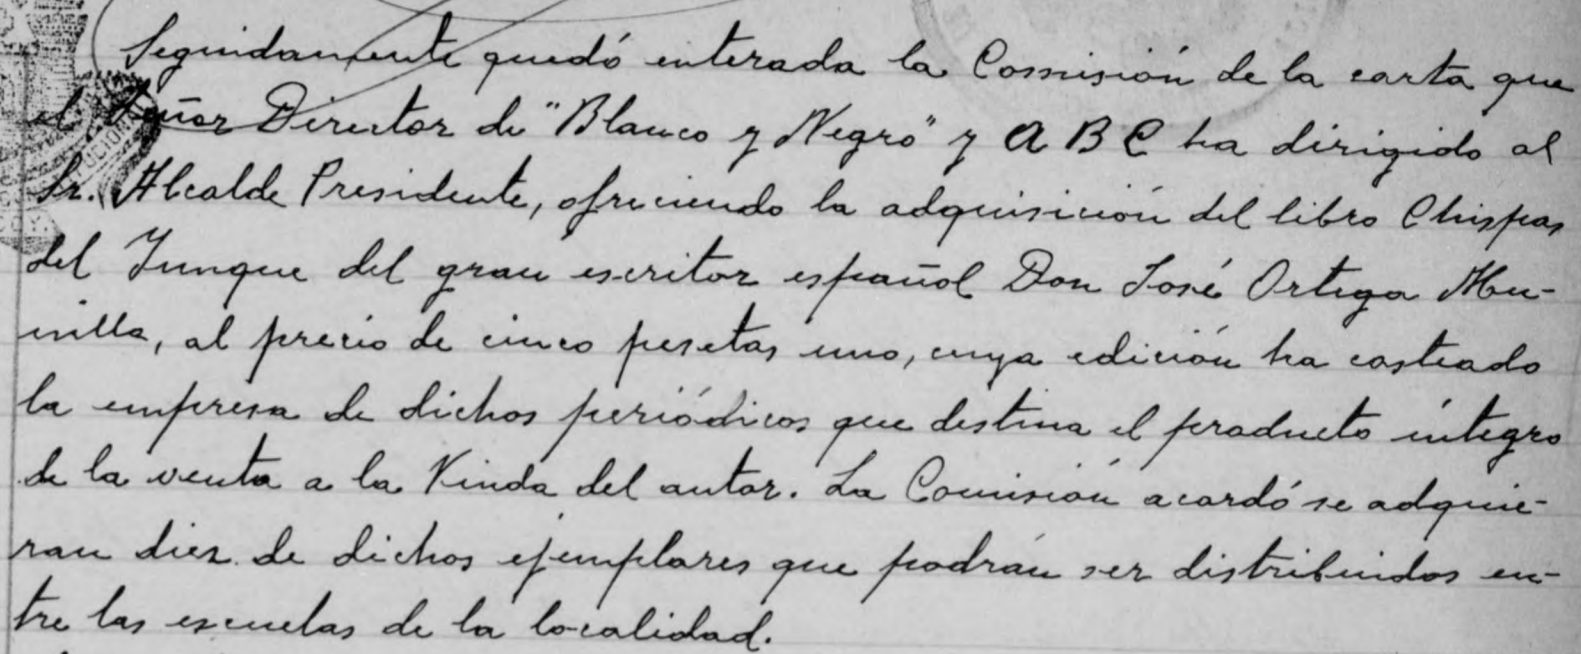 Seguidamente quedó enterada la Comisión de la carta que
el Señor Director de "Blanco y Negro" y A B C ha dirigido al
Sr. Alcalde Presidente, ofreciendo la adquisición del libro Chispas
del Yunque del gran escritor español Don José Ortega Mu-
nilla, al precio de cinco pesetas uno, cuya edición ha costeado
la empresa de dichos periódicos que destina el producto íntegro
de la venta a la Viuda del autor. La Comisión acordó se adquie-
ran diez de dichos ejemplares que podrán ser distribuidos en-
tre las escuelas de la localidad.